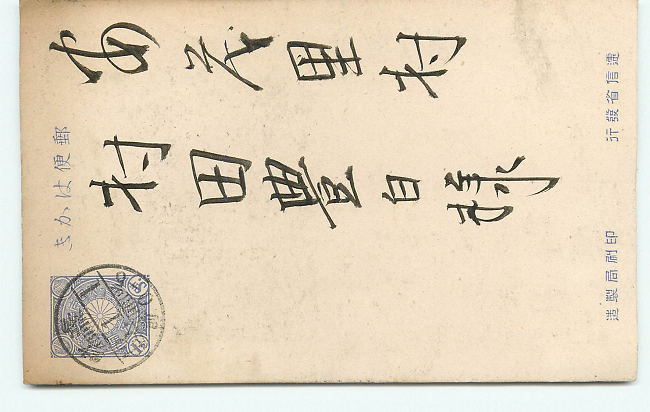 郵便はかき
安茂里村
村田豊白様
遞信省發行
印刷局製造